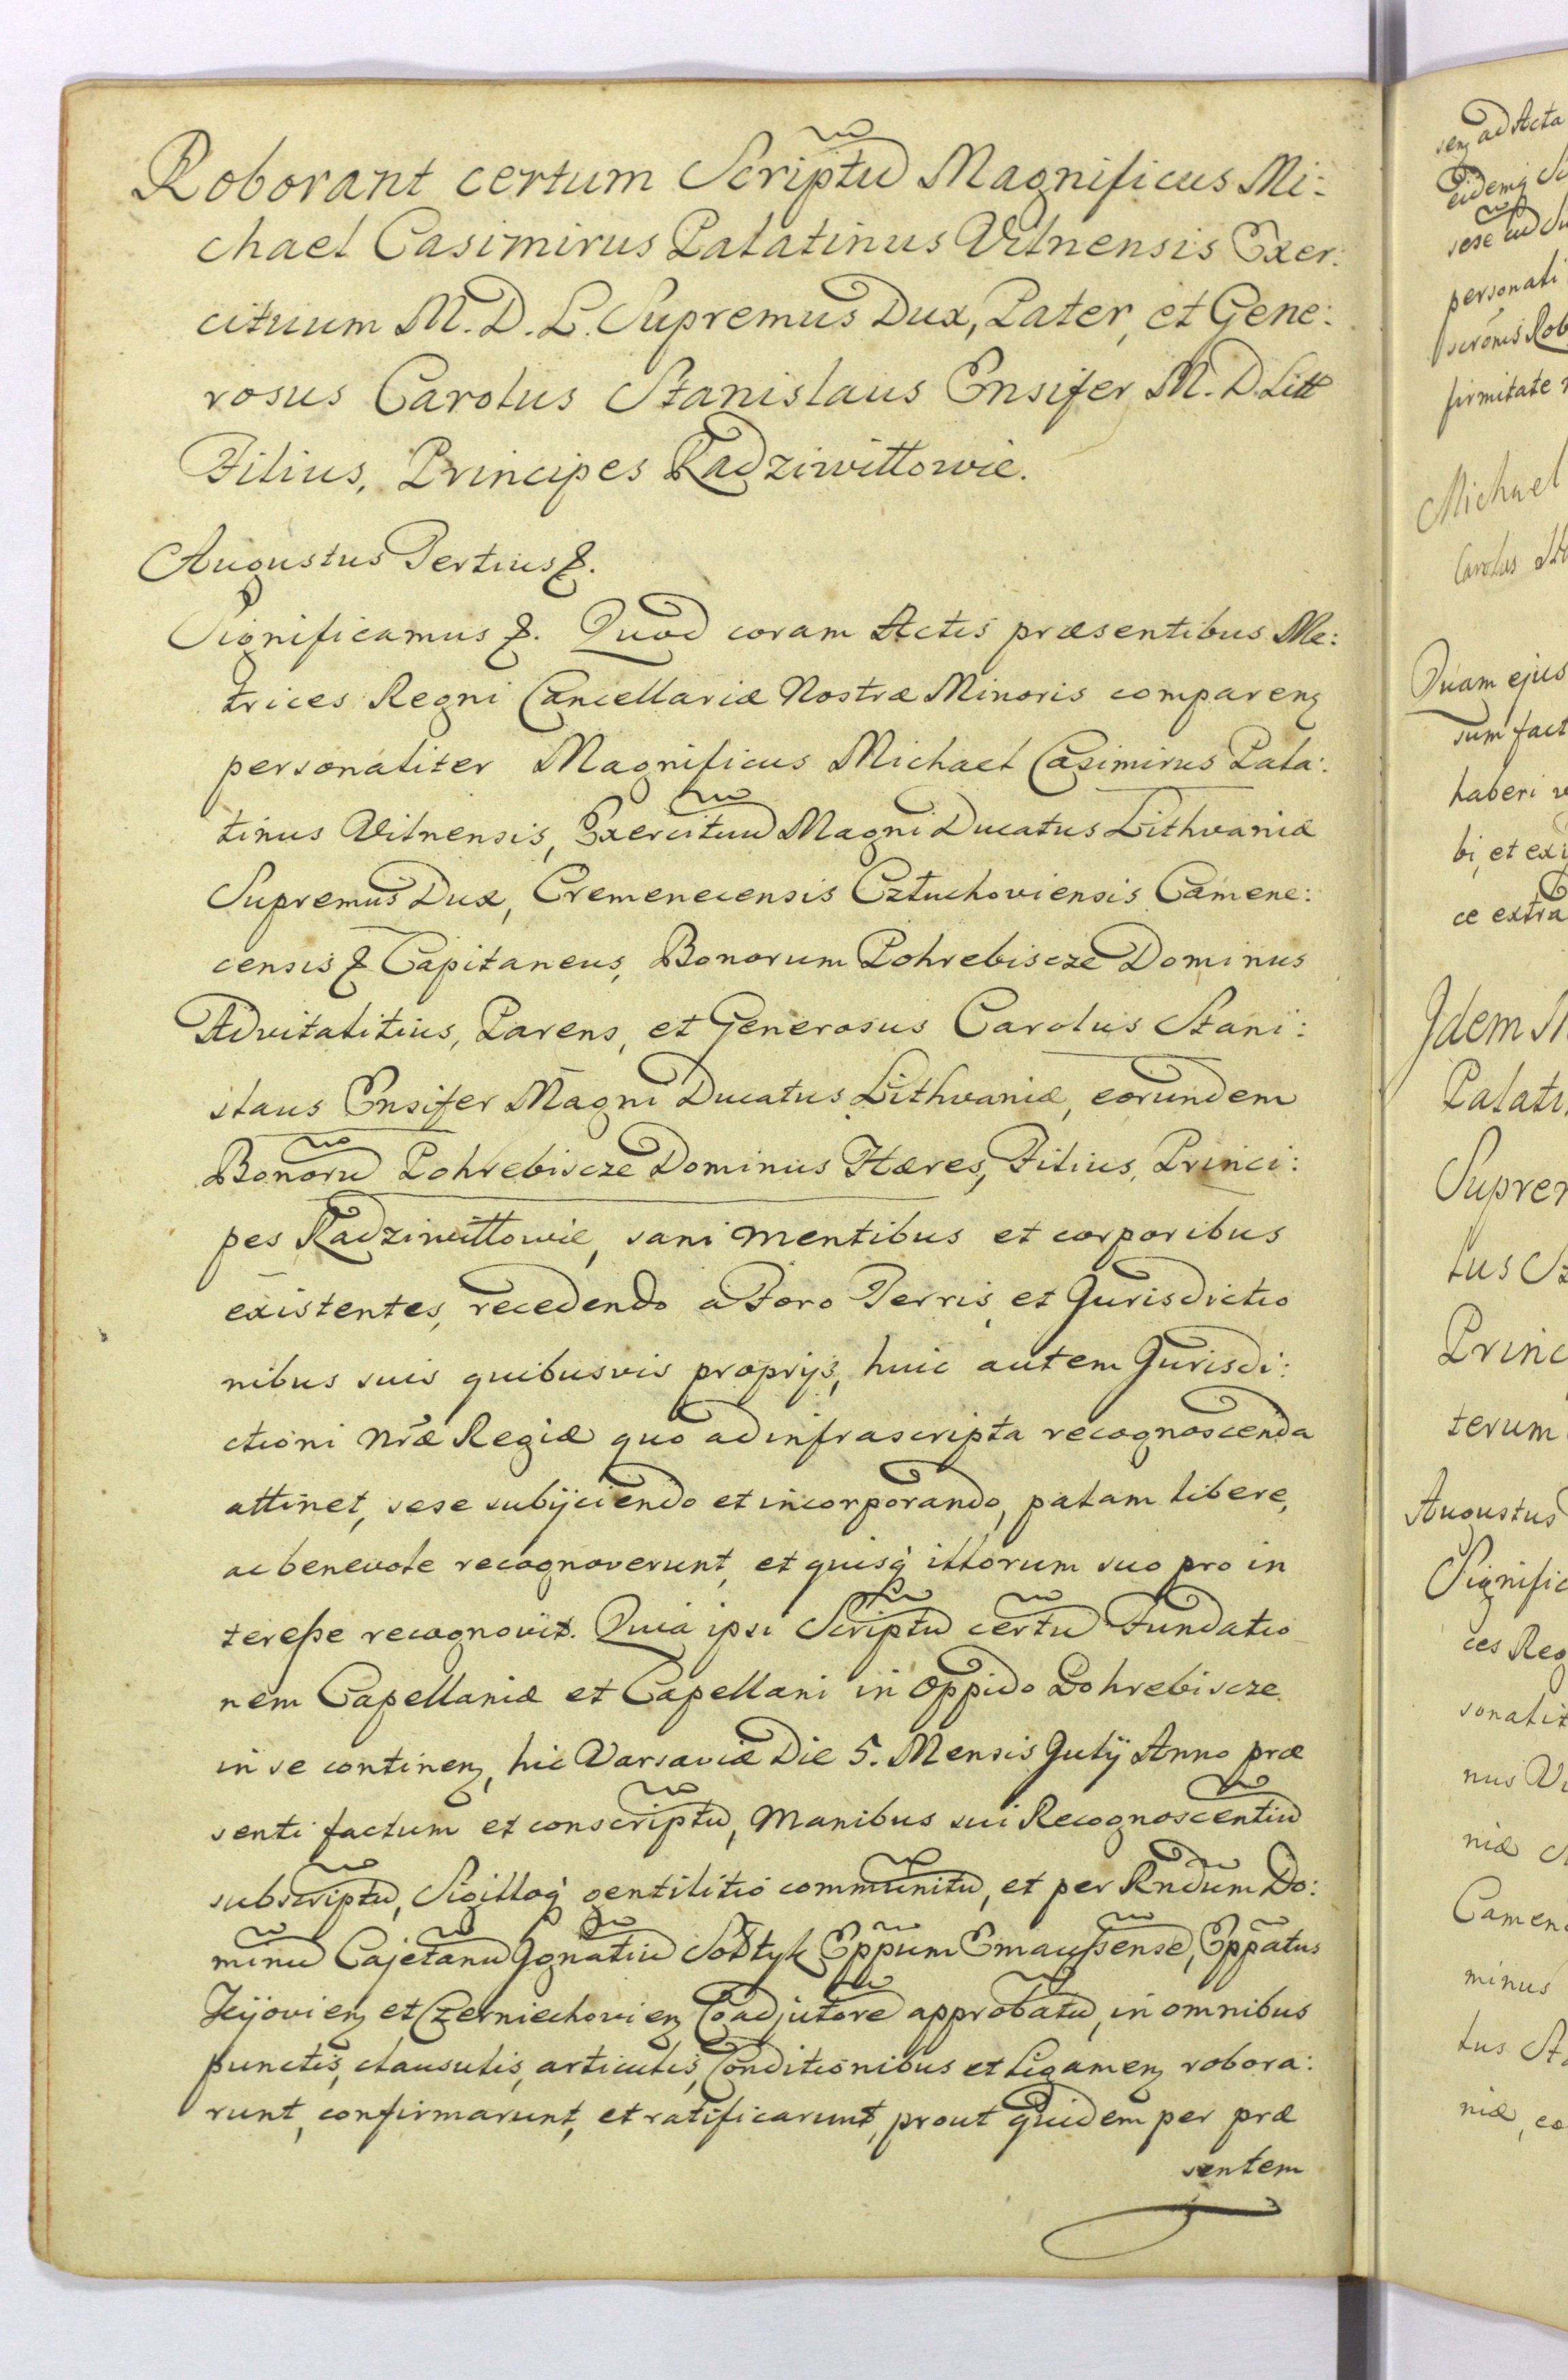 Roborant certum Scriptũ Magnificus Mi:
chael Casimirus Palatinus Vilnensis Exer:
cituum M. D. L. Supremus Dux, Pater, et Gene:
rosus Carolus Stanislaus Ensifer M. D. Litt
Filius, Principes Radziwiłłowie.
Augustus Tertius &.
Significamus &. Quod coram Actis præsentibus Me:
trices Regni Cancellariæ Nostræ Minoris comparenꝫ
personaliter Magnificus Michael Casimirus Pala:
tinus Vilnensis, Exercituũ Magni Ducatus Lithvaniæ
Supremus Dux, Cremenecensis Człuchoviensis Camene:
censis & Capitaneus, Bonorum Pohrebiscze Dominus
Advitalitius, Parens, et Generosus Carolus Stani:
slaus Ensifer Magni Ducatus Lithvaniæ, eorundem
Bonorũ Pohrebiscze Dominus Hæres, Filius, Princi:
pes Radziwiłłowie, sani mentibus et corporibus
existentes, recedendo a Foro Terris, et Jurisdictio
nibus suis quibusvis proprijs, huic autem Jurisdi:
ctioni Nr̃æ Regiæ quo ad infrascripta recognoscenda
attinet, sese subijciendo et incorporando, palam libere,
ac benevole recognoverunt, et quisq́ illorum suo pro in
tereße recognovit. Quia ipsi Scriptũ certũ Fundatio
nem Capellaniæ et Capellani in Oppido Pohrebiscze
in se continenꝫ, hic Varsaviæ Die 5. Mensis Julij Anno præ
senti factum et conscriptũ, Manibus sui Recognoscentiũ
subscriptũ, Sigilloq́ gentilitio communitũ, et per Rndum Do:
minũ Cajetanũ Jgnatiũ Sołtyk Eppum Emaußensẽ, Eppatus
Kijovienꝫ et Czerniechovienꝫ Coadjutorẽ approbatũ, in omnibus
punctis, clausulis, articulis, Conditionibus et Ligamenꝫ robora:
runt, confirmarunt, et ratificarunt, prout quidem per præ
sentem
senꝫ ad Acta
eidemq́
personati
firmitate
Michael
Carolus
Quam ejus
sum fact
haberi
bi, et exi
ce extra
Jdem M
Palati
Suprem
lus S
Princ
terum
Augustus
Signific
ces Reg
sonalit
nus Vi
niæ
Camen
minus
lus St
niæ, eo